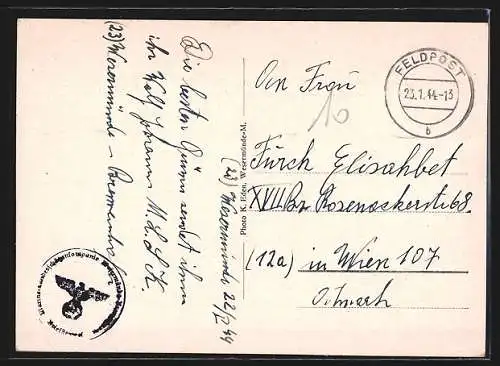 (23) Wesermünde - Bremerha
Die besten Grüsse sendet Ihnen
ihr Wolf Johann M.L.S.K.
(23) Wesermünde 22/I 44
Photo K. Eden, Wesermünde-M.
FELDPOST
23.1.44-13
b
An Frau
10
Fürch Elisahbet
XVII Bz. Rosenackerstr. 68.
(12a) in Wien 107
Ostmark